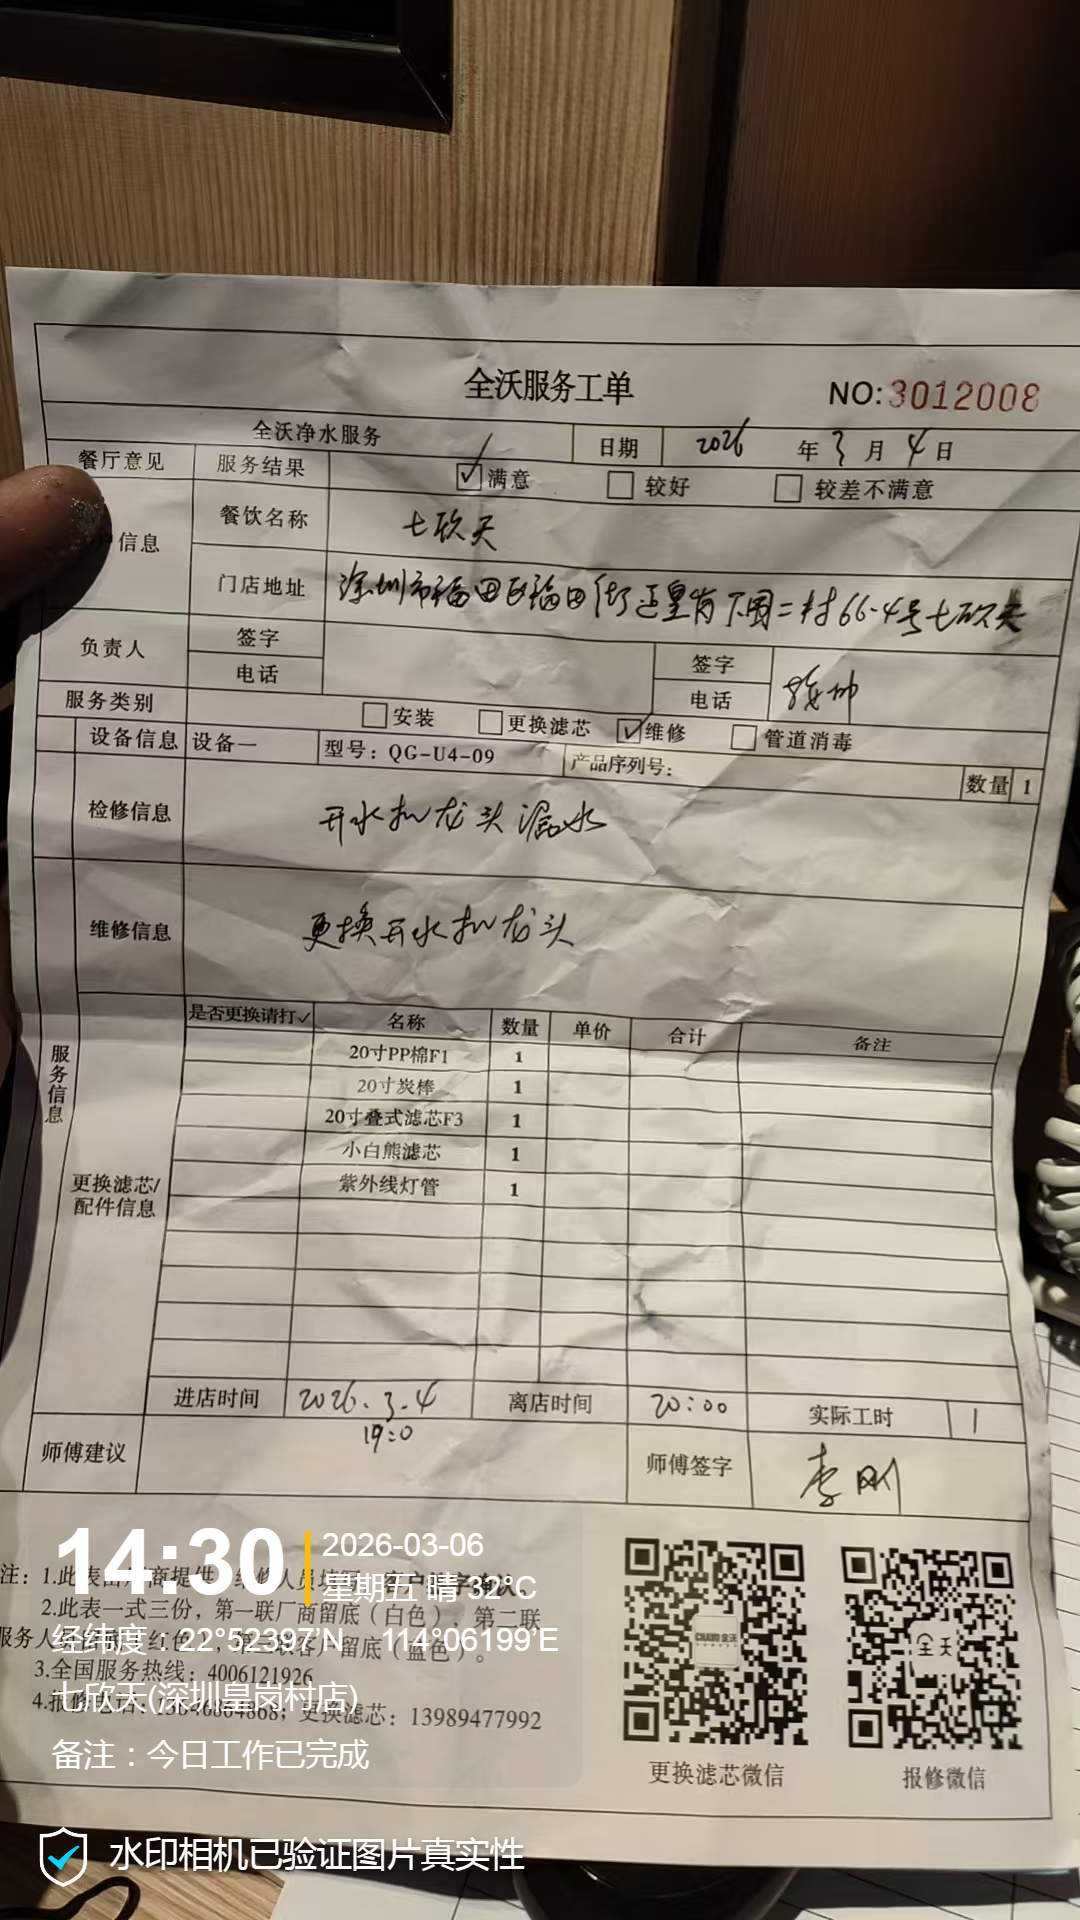 全沃服务工单
NO:3012008
全沃净水服务 日期 2026 年 3 月 4 日
餐厅意见 服务结果 ☑满意 □较好 □较差不满意
户信息 餐饮名称 七欣天
门店地址 深圳市福田区福田街道皇岗下围二村66-4号七欣天
负责人 签字 签字
电话 电话
服务类别 □安装 □更换滤芯 ☑维修 □管道消毒
设备信息 设备一 型号：QG-U4-09 产品序列号： 数量 1
检修信息 开水机龙头漏水
维修信息 更换开水机龙头
服务信息
更换滤芯/配件信息
是否更换请打✓ 名称 数量 单价 合计 备注
20寸PP棉F1 1
20寸炭棒 1
20寸叠式滤芯F3 1
小白熊滤芯 1
紫外线灯管 1
进店时间 2026.3.4 离店时间 20:00 实际工时 1
19:0
师傅建议 师傅签字 李刚
注：1.此表由厂商提供
2.此表一式三份，第一联厂商留底（白色），第二联
服务人 红色 客户留底（蓝色）。
3.全国服务热线：4006121926
4.报修电话： 更换滤芯：13989477992
CHARD 全沃
全天
更换滤芯微信
报修微信
14:30
2026-03-06
星期五 晴 32°C
经纬度：22°52397'N 114°06199'E
七欣天(深圳皇岗村店)
备注：今日工作已完成
水印相机已验证图片真实性